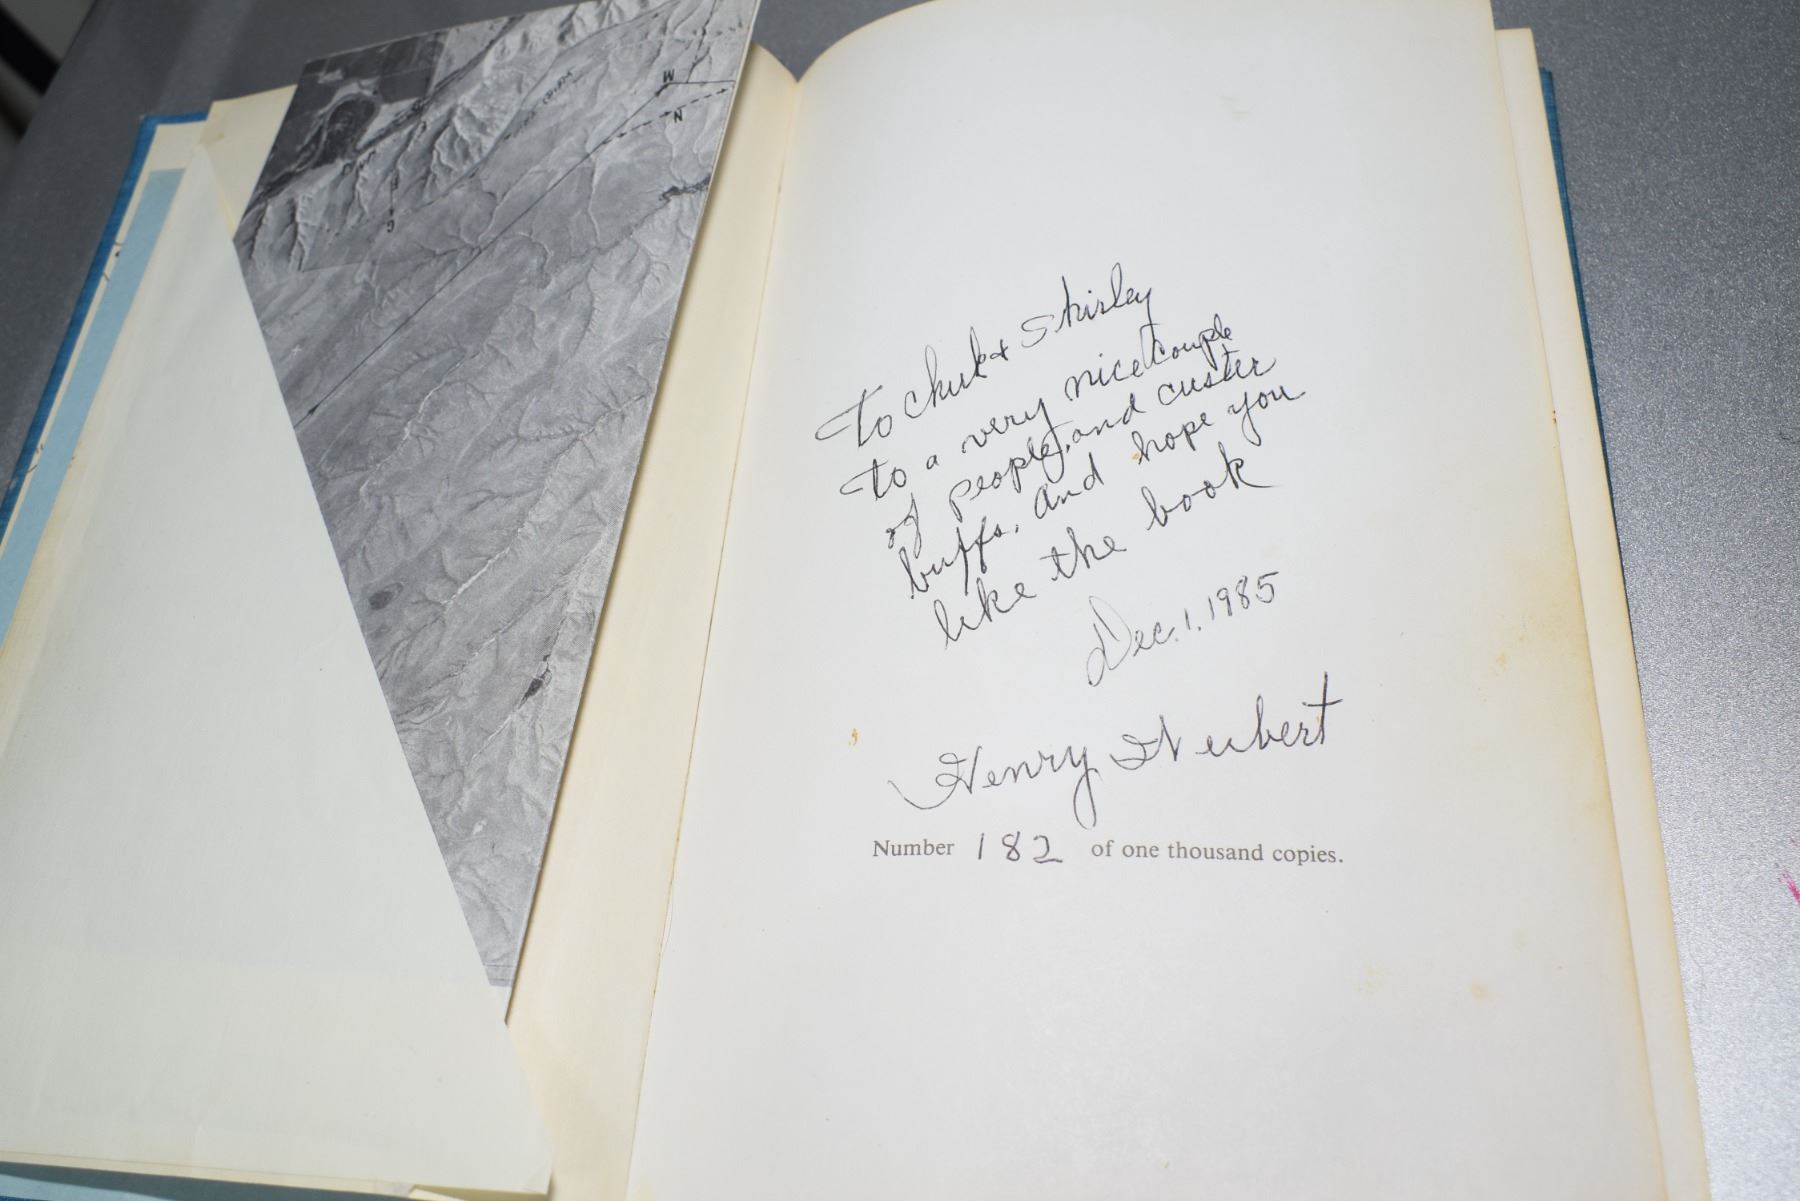 To Chuk & Shirley
to a very nice couple
of people, and custer
buffs. and hope you
like the book
Dec. 1. 1985
Henry Weibert
Number 182 of one thousand copies.
M
N
B
G